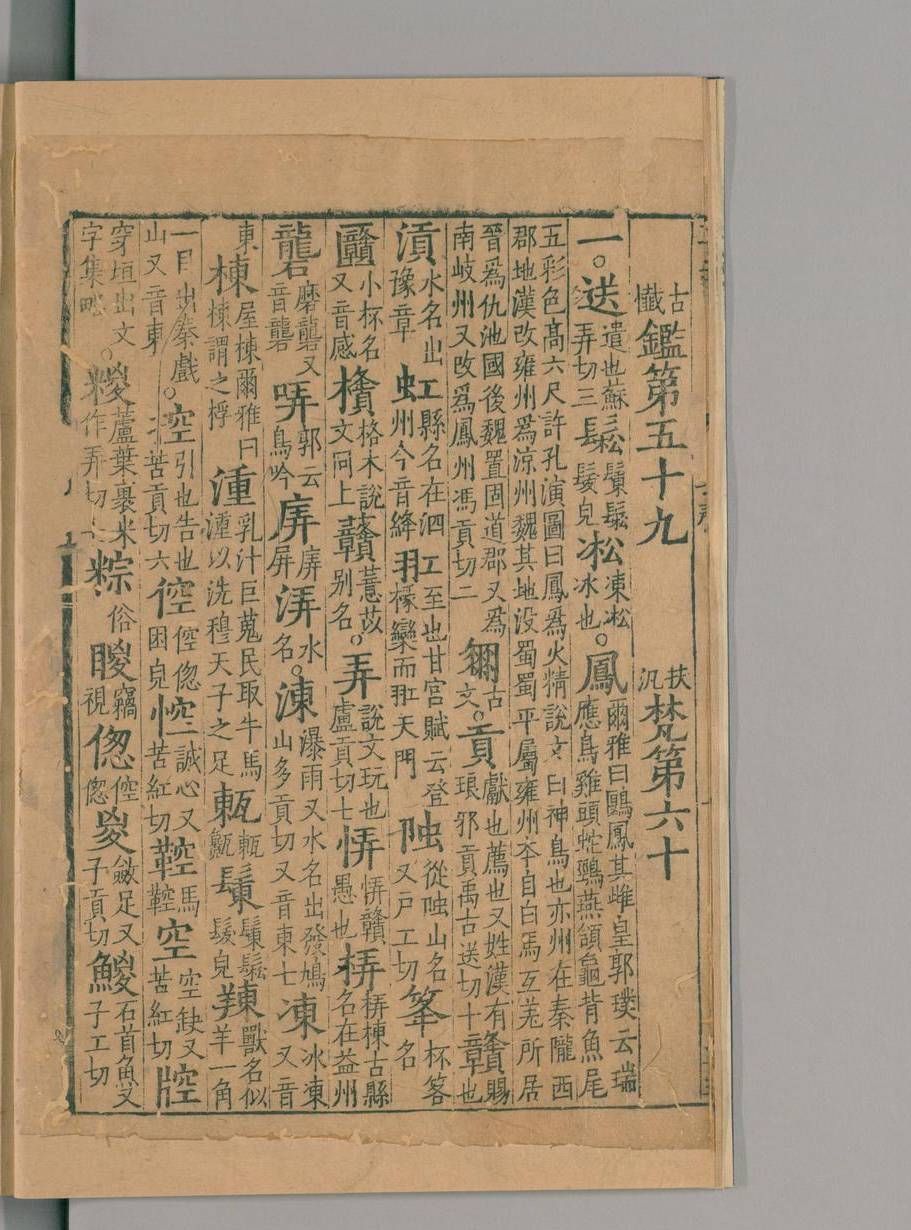 古懴鑑第五十九 扶汎梵第六十
一。送遣也蘇弄切三鬆鬤鬆髮皃凇凍凇冰也。鳳爾雅曰鶠鳳其雌皇郭璞云瑞應鳥雞頭蛇頸燕頷龜背魚尾
五彩色高六尺許孔演圖曰鳳爲火精說文曰神鳥也亦州在秦隴西郡地漢改雍州爲涼州魏其地没蜀蜀平屬雍州本自白馬互羌所居
晉爲仇池國後魏置固道郡又爲南岐州又改爲鳳州馮貢切二古文。貢獻也薦也又姓漢有琅邪貢禹古送切十贛賜也
湏水名出豫章虹縣名在泗州今音絳羾至也甘宮賦云登椽欒而羾天門從山名又戶工切夅杯笿名
小杯名又音感格木說文同上贛薏苡别名。弄說文玩也盧貢切七㤚㤚戇愚也梇梇棟古縣名在益州
礲磨礲又音礱哢郭云鳥吟㢅㢅屏㳥水名。涷瀑雨又水名出發鳩山多貢切又音東七凍冰凍又音
東棟屋棟爾雅曰棟謂之桴湩乳汁巨蒐民取牛馬湩以洗穆天子之足髮皃獸名似羊一角
一目出秦戲山又音東。控引也告也苦貢切六倥倥偬困皃悾誠心又苦紅切鞚馬鞚空空缺又苦紅切腔
穿垣出文字集略。糉蘆葉裹米作弄切七粽俗䁓竊視偬倥偬㚇斂足又子貢切鯼石首魚又子工切